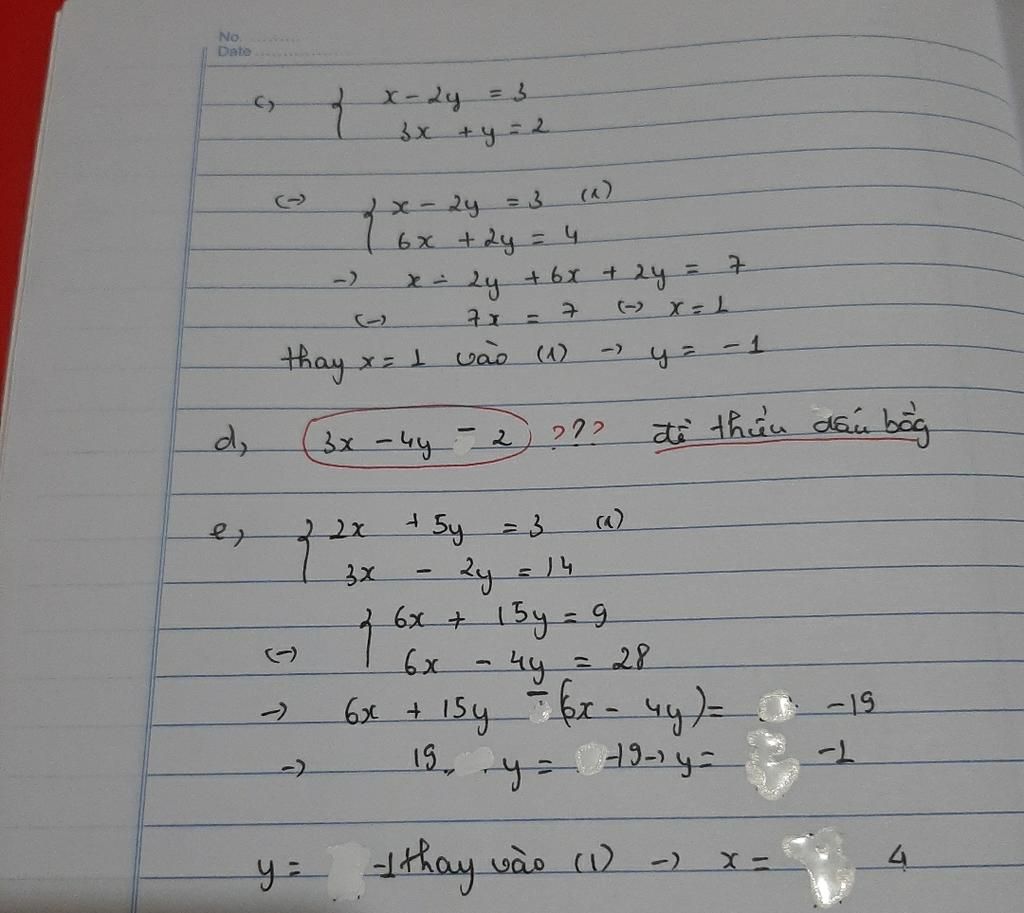 No. ............
Date ........................
c, { x - 2y = 3
3x + y = 2
<-> { x - 2y = 3 (1)
6x + 2y = 4
-> x - 2y + 6x + 2y = 7
<-> 7x = 7 <-> x = 1
thay x = 1 vào (1) -> y = -1
d, 3x - 4y - 2 ??? đề thiếu dấu bằg
e, { 2x + 5y = 3 (1)
3x - 2y = 14
<-> { 6x + 15y = 9
6x - 4y = 28
-> 6x + 15y - (6x - 4y) = -19
-> 19 y = -19 -> y = -1
y = -1 thay vào (1) -> x = 4